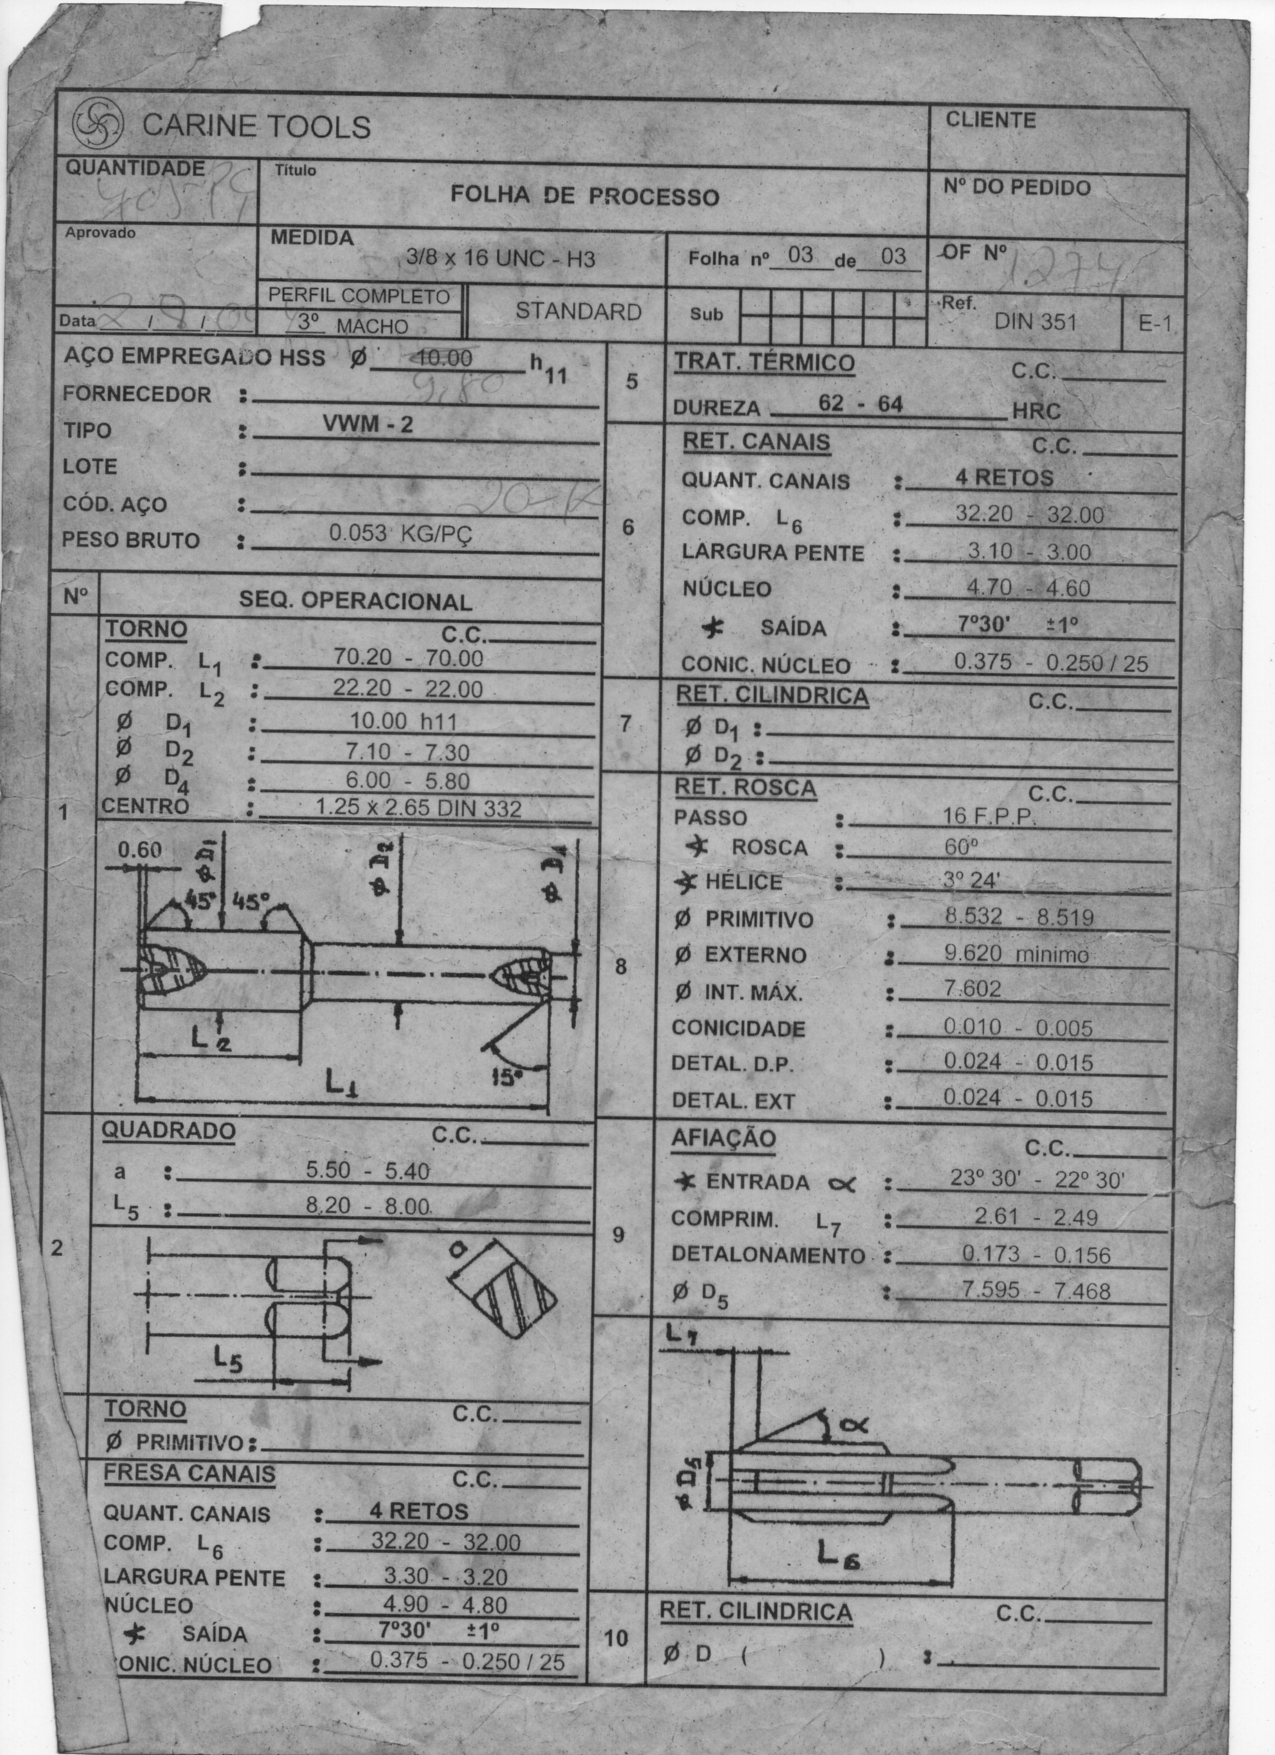 CARINE TOOLS
CLIENTE
QUANTIDADE
Titulo
FOLHA DE PROCESSO
Nº DO PEDIDO
Aprovado
MEDIDA
3/8 x 16 UNC - H3
Folha nº 03 de 03
OF Nº 1274
PERFIL COMPLETO
3º MACHO
STANDARD
Sub
Ref.
DIN 351
E-1
Data / /
AÇO EMPREGADO HSS Ø 10.00 h11
9,80
FORNECEDOR :
TIPO : VWM - 2
LOTE :
CÓD. AÇO :
PESO BRUTO : 0.053 KG/PÇ
Nº
SEQ. OPERACIONAL
1
TORNO C.C.
COMP. L1 : 70.20 - 70.00
COMP. L2 : 22.20 - 22.00
Ø D1 : 10.00 h11
Ø D2 : 7.10 - 7.30
Ø D4 : 6.00 - 5.80
CENTRO : 1.25 x 2.65 DIN 332
0.60
Ø D1
Ø D2
Ø D4
45° 45°
L2
15°
L1
2
QUADRADO C.C.
a : 5.50 - 5.40
L5 : 8.20 - 8.00
a
L5
TORNO C.C.
Ø PRIMITIVO :
FRESA CANAIS C.C.
QUANT. CANAIS : 4 RETOS
COMP. L6 : 32.20 - 32.00
LARGURA PENTE : 3.30 - 3.20
NÚCLEO : 4.90 - 4.80
SAÍDA : 7º30' ±1º
ONIC. NÚCLEO : 0.375 - 0.250 / 25
5
TRAT. TÉRMICO C.C.
DUREZA 62 - 64 HRC
6
RET. CANAIS C.C.
QUANT. CANAIS : 4 RETOS
COMP. L6 : 32.20 - 32.00
LARGURA PENTE : 3.10 - 3.00
NÚCLEO : 4.70 - 4.60
SAÍDA : 7º30' ±1º
CONIC. NÚCLEO : 0.375 - 0.250 / 25
7
RET. CILINDRICA C.C.
Ø D1 :
Ø D2 :
8
RET. ROSCA C.C.
PASSO : 16 F.P.P.
ROSCA : 60º
HÉLICE : 3º 24'
Ø PRIMITIVO : 8.532 - 8.519
Ø EXTERNO : 9.620 minimo
Ø INT. MÁX. : 7.602
CONICIDADE : 0.010 - 0.005
DETAL. D.P. : 0.024 - 0.015
DETAL. EXT : 0.024 - 0.015
9
AFIAÇÃO C.C.
ENTRADA α : 23º 30' - 22º 30'
COMPRIM. L7 : 2.61 - 2.49
DETALONAMENTO : 0.173 - 0.156
Ø D5 : 7.595 - 7.468
L7
α
Ø D5
L6
10
RET. CILINDRICA C.C.
Ø D ( ) :